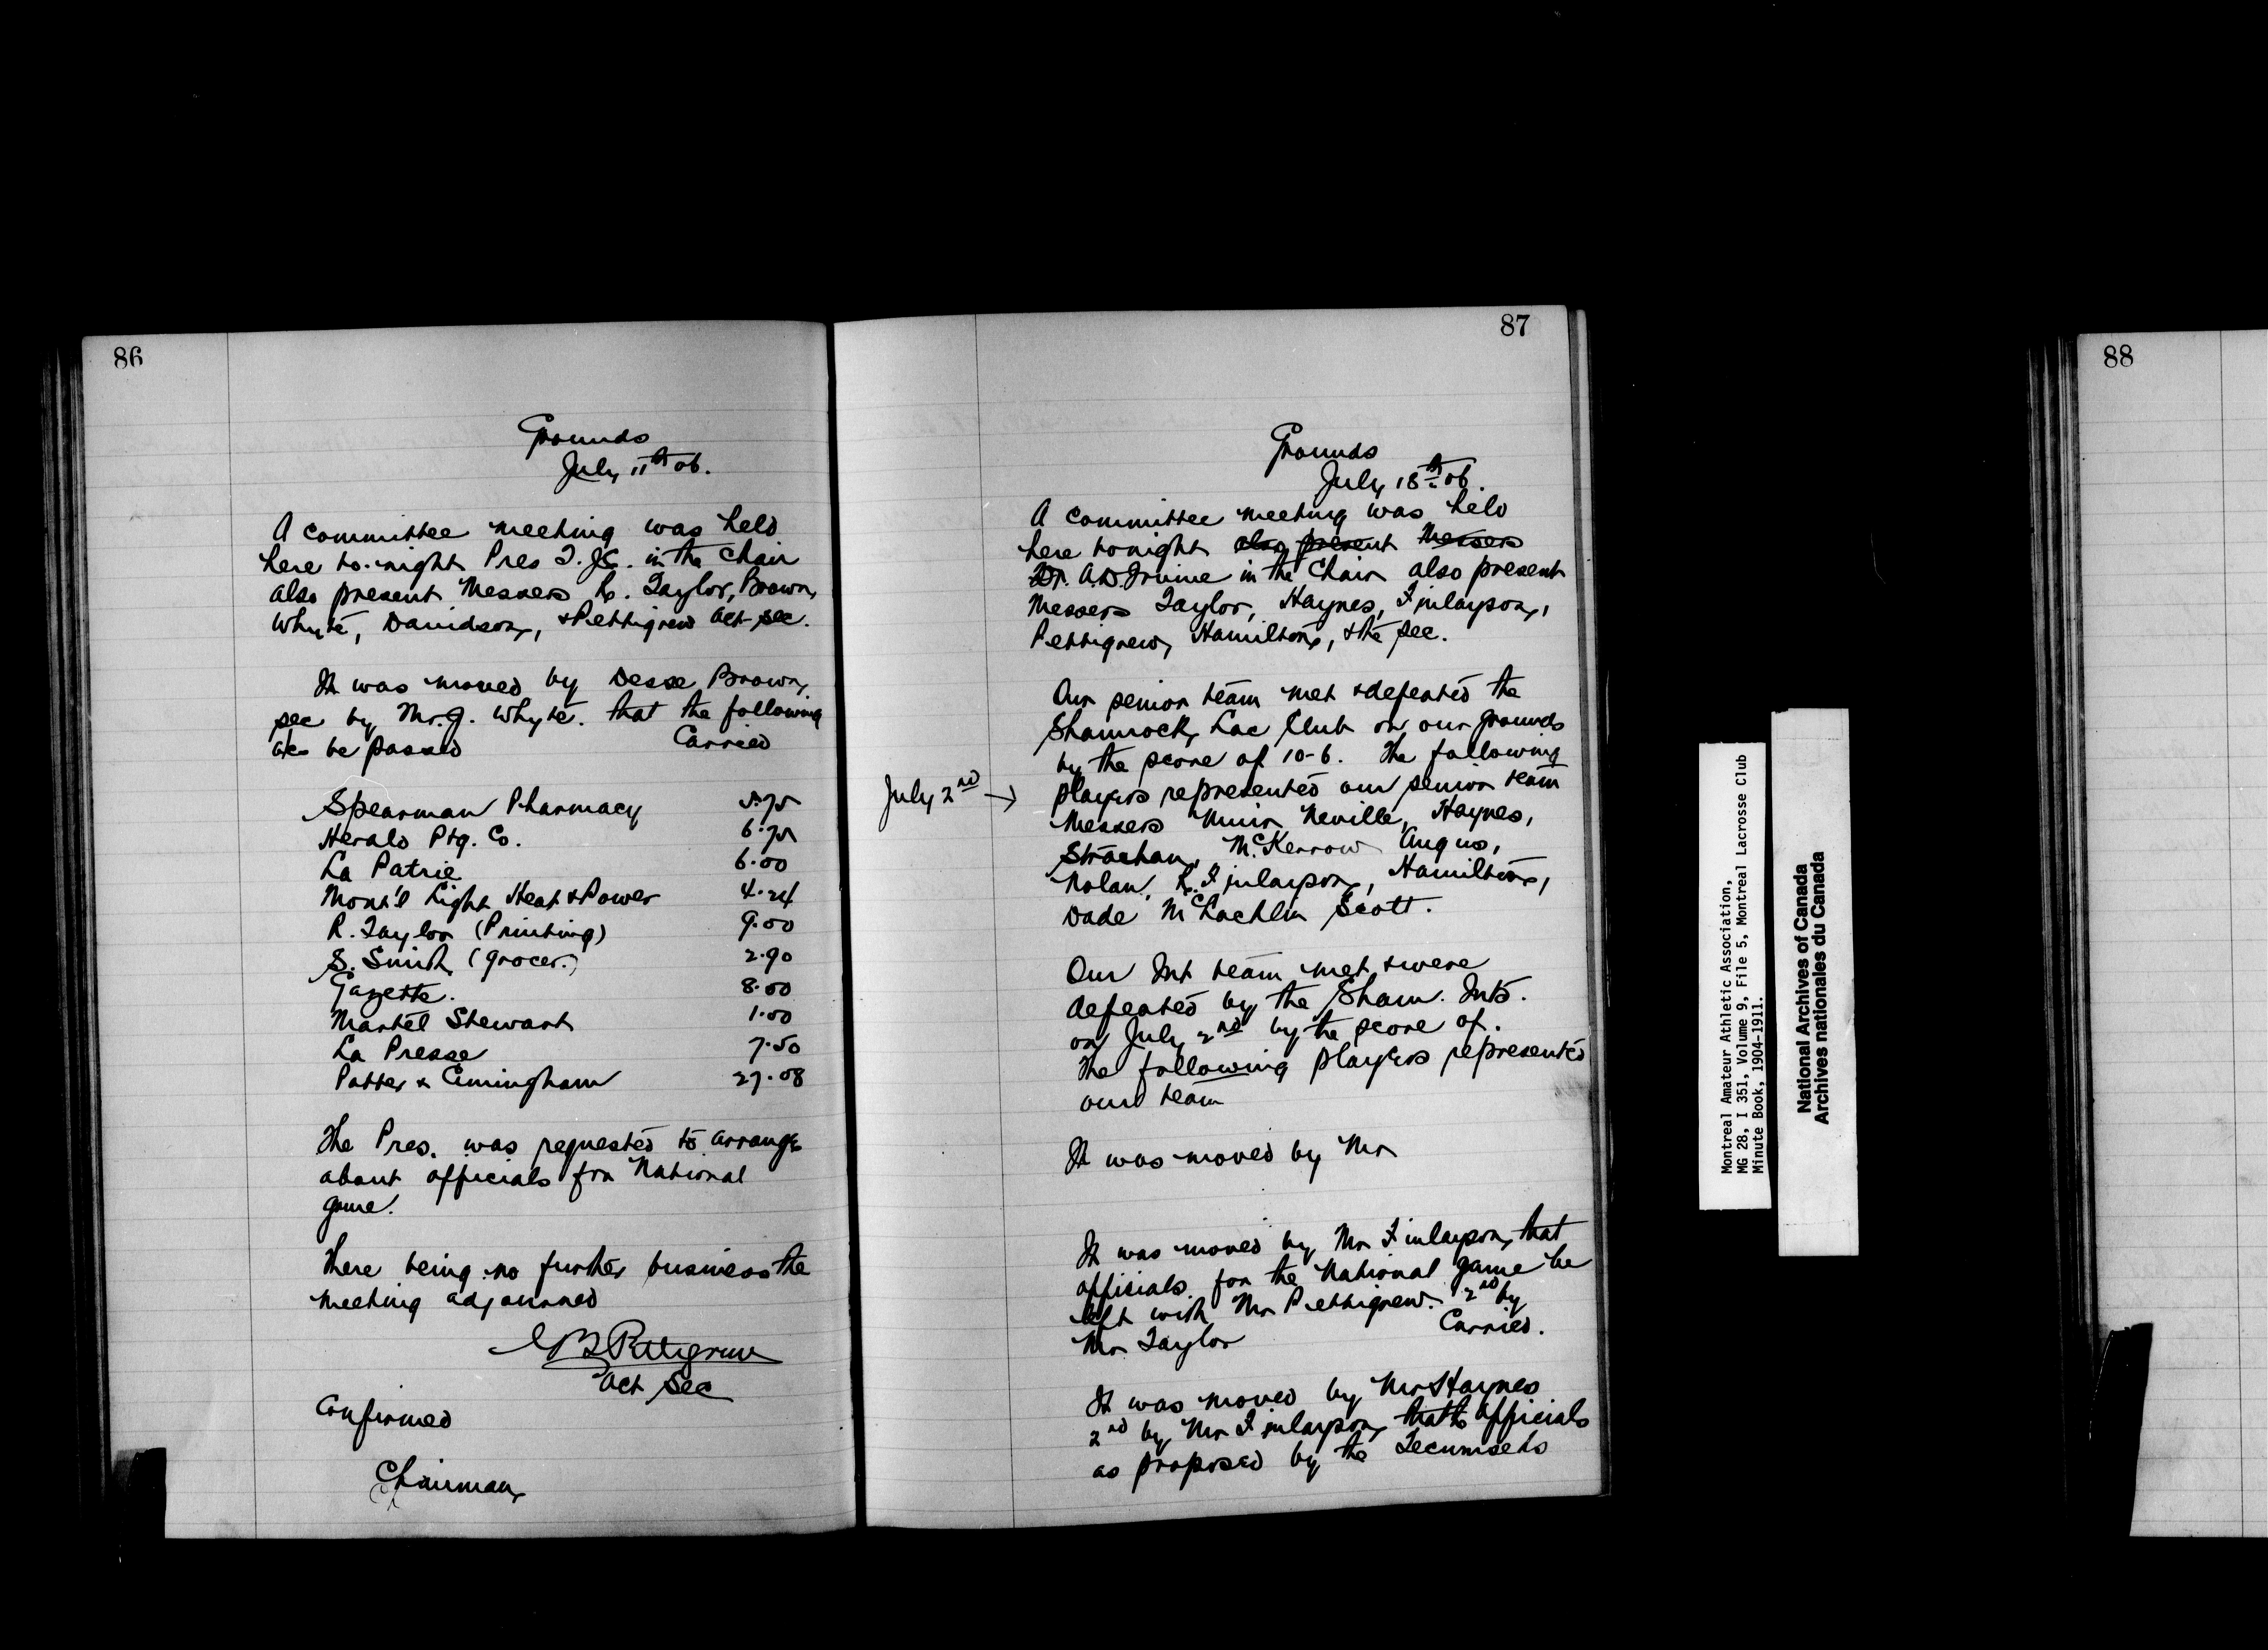 86
Grounds
July 11th 06.
A committee meeting was held
here to-night Pres T. J.C. in the chair
also present Messers R. Taylor, Brown,
Whyte, Davidson, & Pettigrew act sec.
It was moved by Desse Brown,
sec by Mr. J. Whyte. that the following
a/cs be passed Carried
Spearman Pharmacy 5.75
Herald Ptg. Co. 6.75
La Patrie 6.00
Mont'l Light Heat & Power 4.24
R. Taylor (Printing) 9.00
S. Smith (grocer.) 2.90
Gazette. 8.00
Martel Stewart 1.00
La Presse 7.50
Patter & Cuningham 27.08
The Pres. was requested to arrange
about officials for National
game.
There being no further business the
meeting adjourned
Pettigrew
Act Sec
Confirmed
Chairman
87
Grounds
July 18th 06.
A committee meeting was held
here tonight also present Messers
Dr. A.D. Irvine in the Chair also present
Messers Taylor, Haynes, Finlayson,
Pettigrew, Hamilton, & the sec.
Our senior team met & defeated the
Shamrock Lac Club on our grounds
by the score of 10-6. The following
July 2nd → players represented our senior team
Messers Muir Neville, Haynes,
Strachan, McKerrow Angus,
Nolan, R. Finlayson, Hamilton,
Dade McLachlin Scott.
Our Int team met & were
defeated by the Sham. Ints.
on July 2nd by the score of.
The following players represented
our team
It was moved by Mr
It was moved by Mr Finlayson, that
officials for the National game be
left with Mr Pettigrew. 2nd by
Mr Taylor Carried.
It was moved by Mr Haynes
2nd by Mr Finlayson, that officials
as proposed by the Tecumsehs
Montreal Amateur Athletic Association,
MG 28, I 351, Volume 9, File 5, Montreal Lacrosse Club
Minute Book, 1904-1911.
National Archives of Canada
Archives nationales du Canada
88